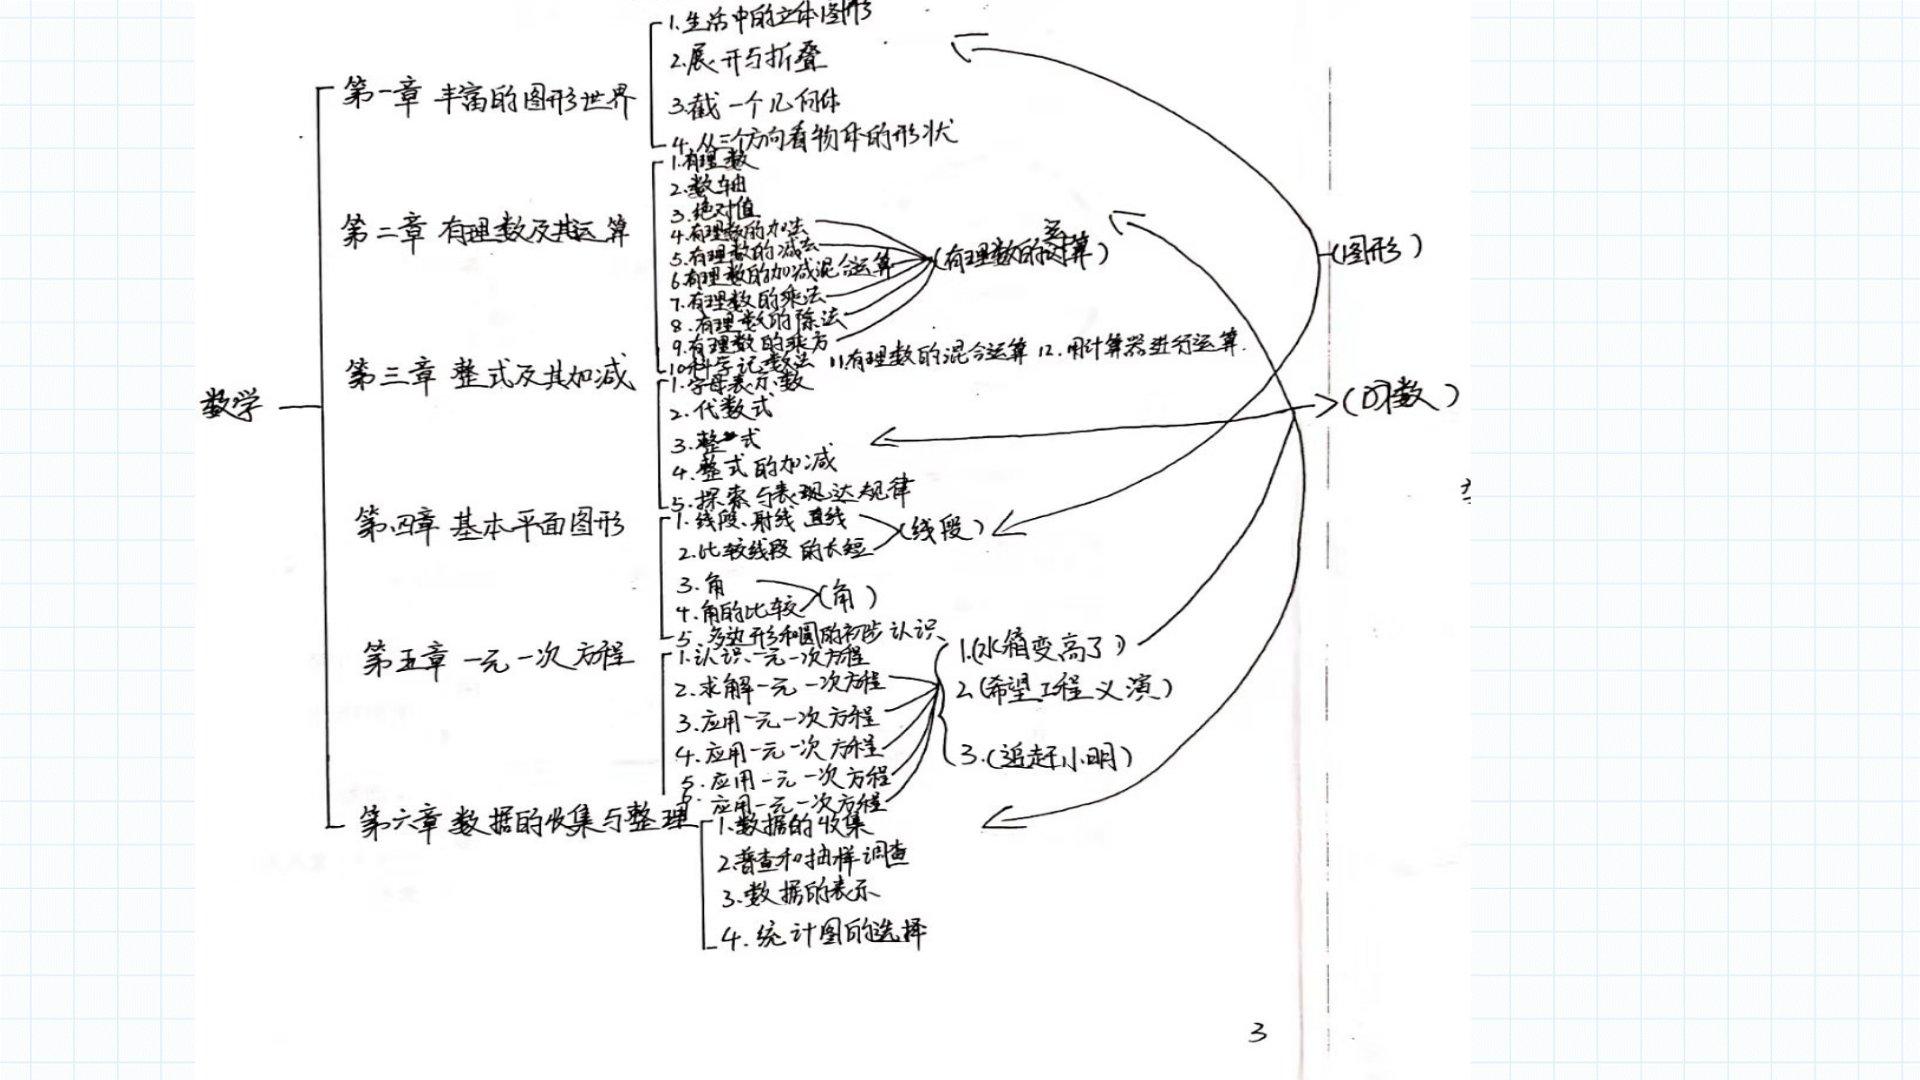 数学
第一章 丰富的图形世界
1.生活中的立体图形
2.展开与折叠
3.截一个几何体
4.从三个方向看物体的形状
第二章 有理数及其运算
1.有理数
2.数轴
3.绝对值
4.有理数的加法
5.有理数的减法
6.有理数的加减混合运算
7.有理数的乘法
8.有理数的除法
9.有理数的乘方
10.科学记数法 11.有理数的混合运算 12.用计算器进行运算.
(有理数的算)
第三章 整式及其加减
1.字母表示数
2.代数式
3.整式
4.整式的加减
5.探索与表现达规律
第四章 基本平面图形
1.线段、射线 直线
2.比较线段的长短
(线段)
3.角
4.角的比较
(角)
5.多边形和圆的初步认识
第五章 一元一次方程
1.认识一元一次方程
2.求解一元一次方程
3.应用一元一次方程
4.应用一元一次方程
5.应用一元一次方程
6.应用一元一次方程
1.(水箱变高了)
2.(希望工程义演)
3.(追赶小明)
第六章 数据的收集与整理
1.数据的收集
2.普查和抽样调查
3.数据的表示
4.统计图的选择
(图形)
3